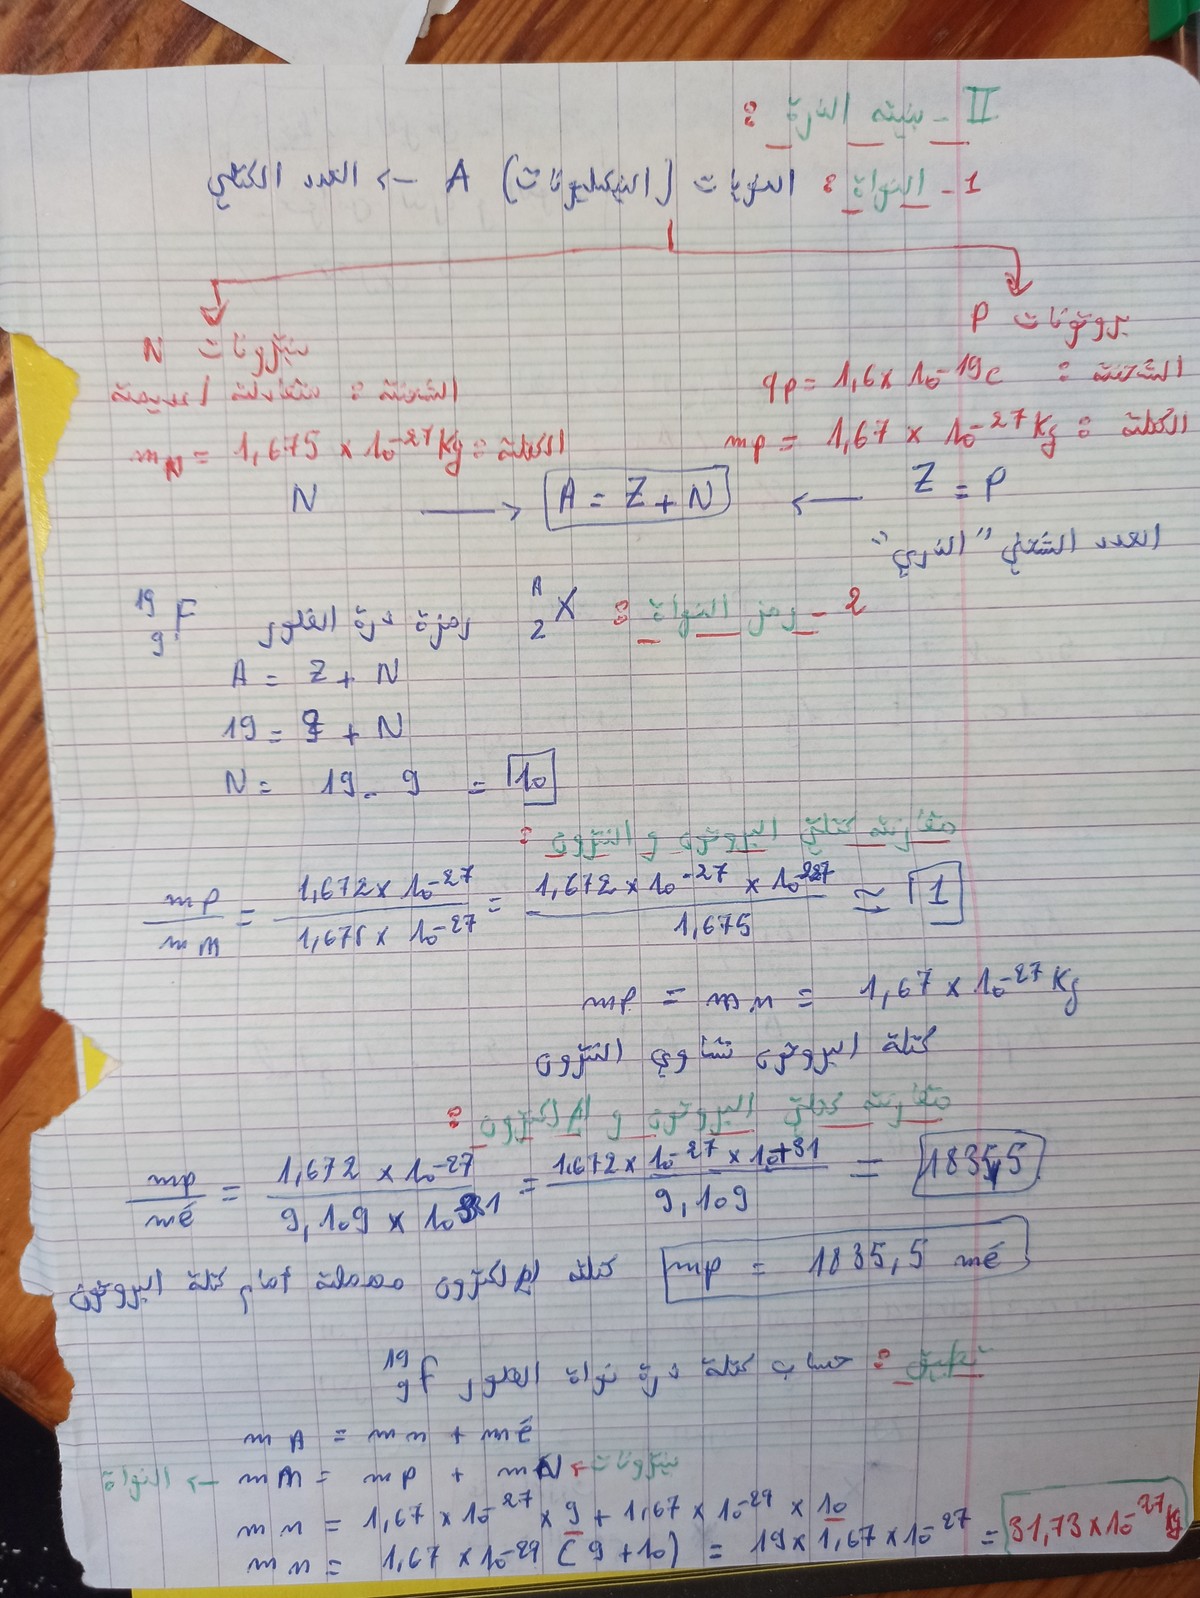 II - بنية الذرة :
1 - النواة : النويات (النيكليونات) A -> العدد الكتلي
بروتونات P
نيترونات N
الشحنة : qp = 1,6 x 10-19c
الشحنة : متعادلة / معدومة
الكتلة : mp = 1,67 x 10-27 Kg
الكتلة : mN = 1,675 x 10-27 Kg
Z = P
A = Z + N
N
العدد الشحني "الذري"
2 - رمز النواة : A Z X رمزة ذرة الفلور 19 9 F
A = Z + N
19 = 9 + N
N = 19 - 9 = 10
مقارنة كتلتي البروتون و النترون :
mp / mn = 1,672 x 10-27 / 1,675 x 10-27 = 1,672 x 10-27 x 10 27 / 1,675 ≈ 1
mp = mn = 1,67 x 10-27 Kg
كتلة البروتون تساوي النترون
مقارنة كتلتي البروتون و الإلكترون :
mp / mé = 1,672 x 10-27 / 9,109 x 10-31 = 1,672 x 10-27 x 10+31 / 9,109 = 1835,5
mp = 1835,5 mé كتلة الإلكترون مهملة أمام كتلة البروتون
تطبيق : حساب كتلة ذرة نواة الفلور 19 9 F
mA = mn + mé
النواة <- mn = mp + mN -> نيترونات
mn = 1,67 x 10-27 x 9 + 1,67 x 10-29 x 10
mn = 1,67 x 10-29 (9 + 10) = 19 x 1,67 x 10-27 = 31,73 x 10-27 Kg